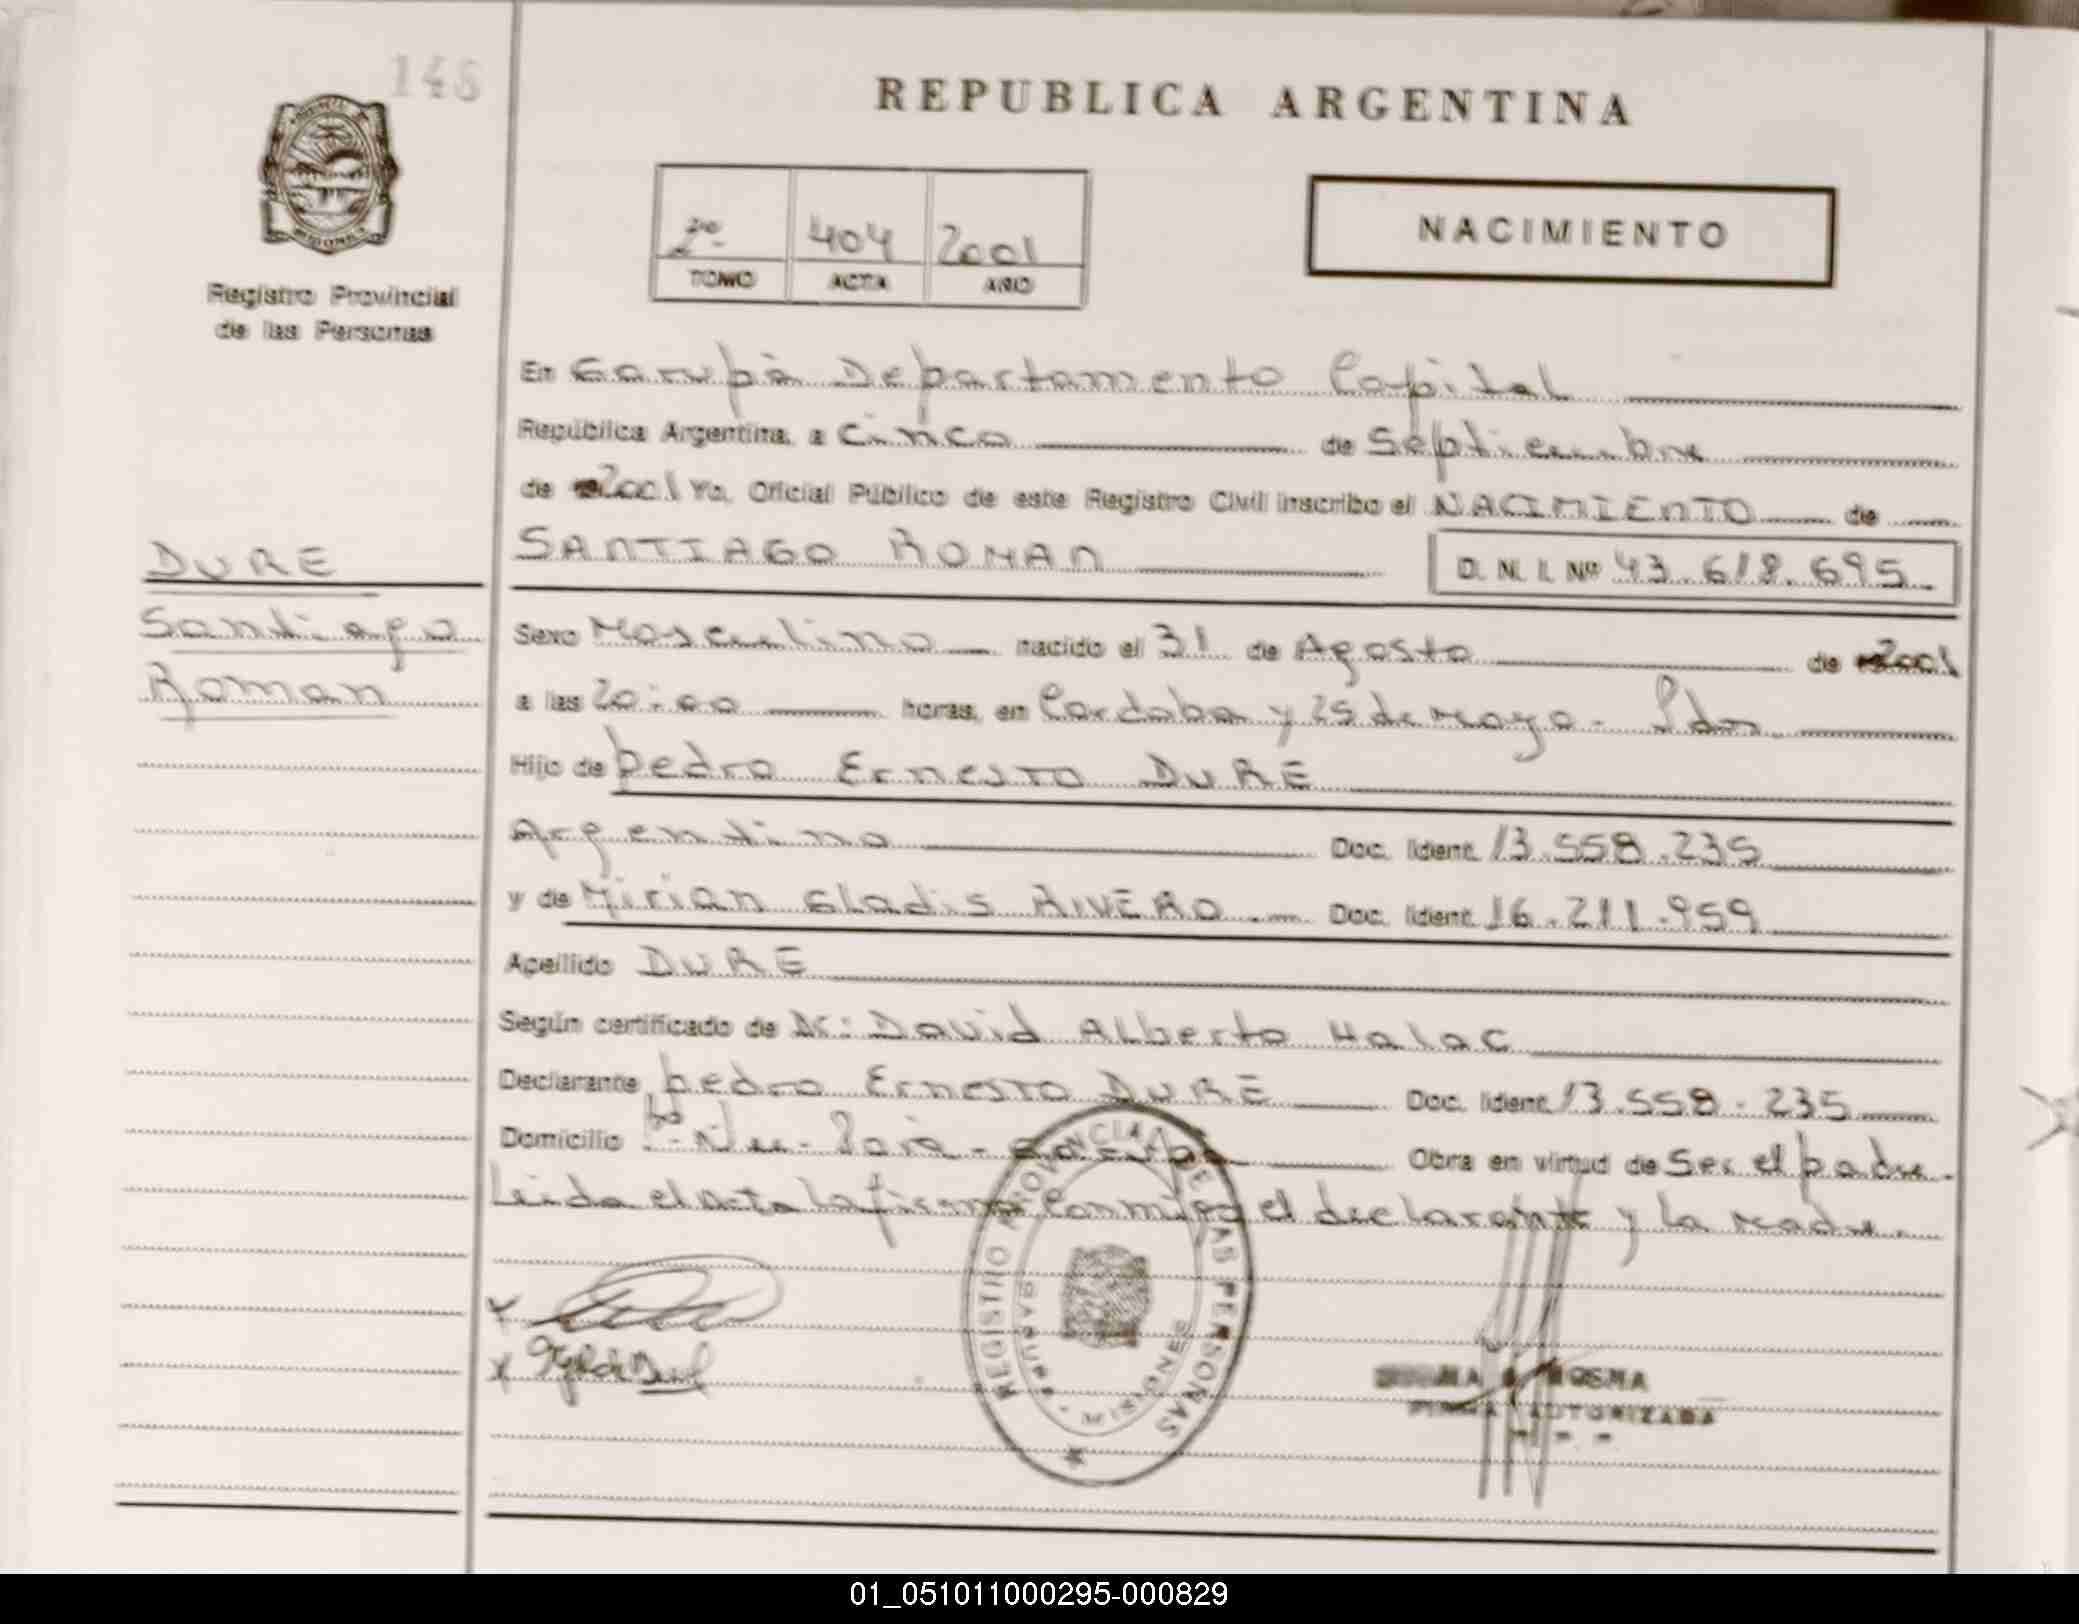 146
REPUBLICA ARGENTINA
2do 404 2001
TOMO ACTA AÑO
NACIMIENTO
Registro Provincial
de las Personas
En Garupà Departamento Capital
República Argentina, a Cinco de Septiembre
de 2001 Yo, Oficial Público de este Registro Civil inscribo el NACIMIENTO de
SANTIAGO ROMAN D. N. I. Nº 43.618.695
DURE
Santiago
Roman
Sexo Masculino nacido el 31 de Agosto de 2001
a las 20:00 horas, en Cordoba y 25 de Mayo - Pdas
Hijo de Pedro Ernesto DURE
Argentino Doc. Ident. 13.558.235
y de Mirian Gladis RIVERO.- Doc. Ident. 16.211.959
Apellido DURE
Según certificado de Dr: David Alberto Halac
Declarante Pedro Ernesto DURE Doc. Ident. 13.558.235
Domicilio Bo - Ñu - Porà - Garupà Obra en virtud de Ser el padre.
Leida el acta la firma Conmigo el declarante y la madre.
REGISTRO PROVINCIAL DE LAS PERSONAS
GARUPA - MISIONES
FIRMA AUTORIZADA
01_051011000295-000829